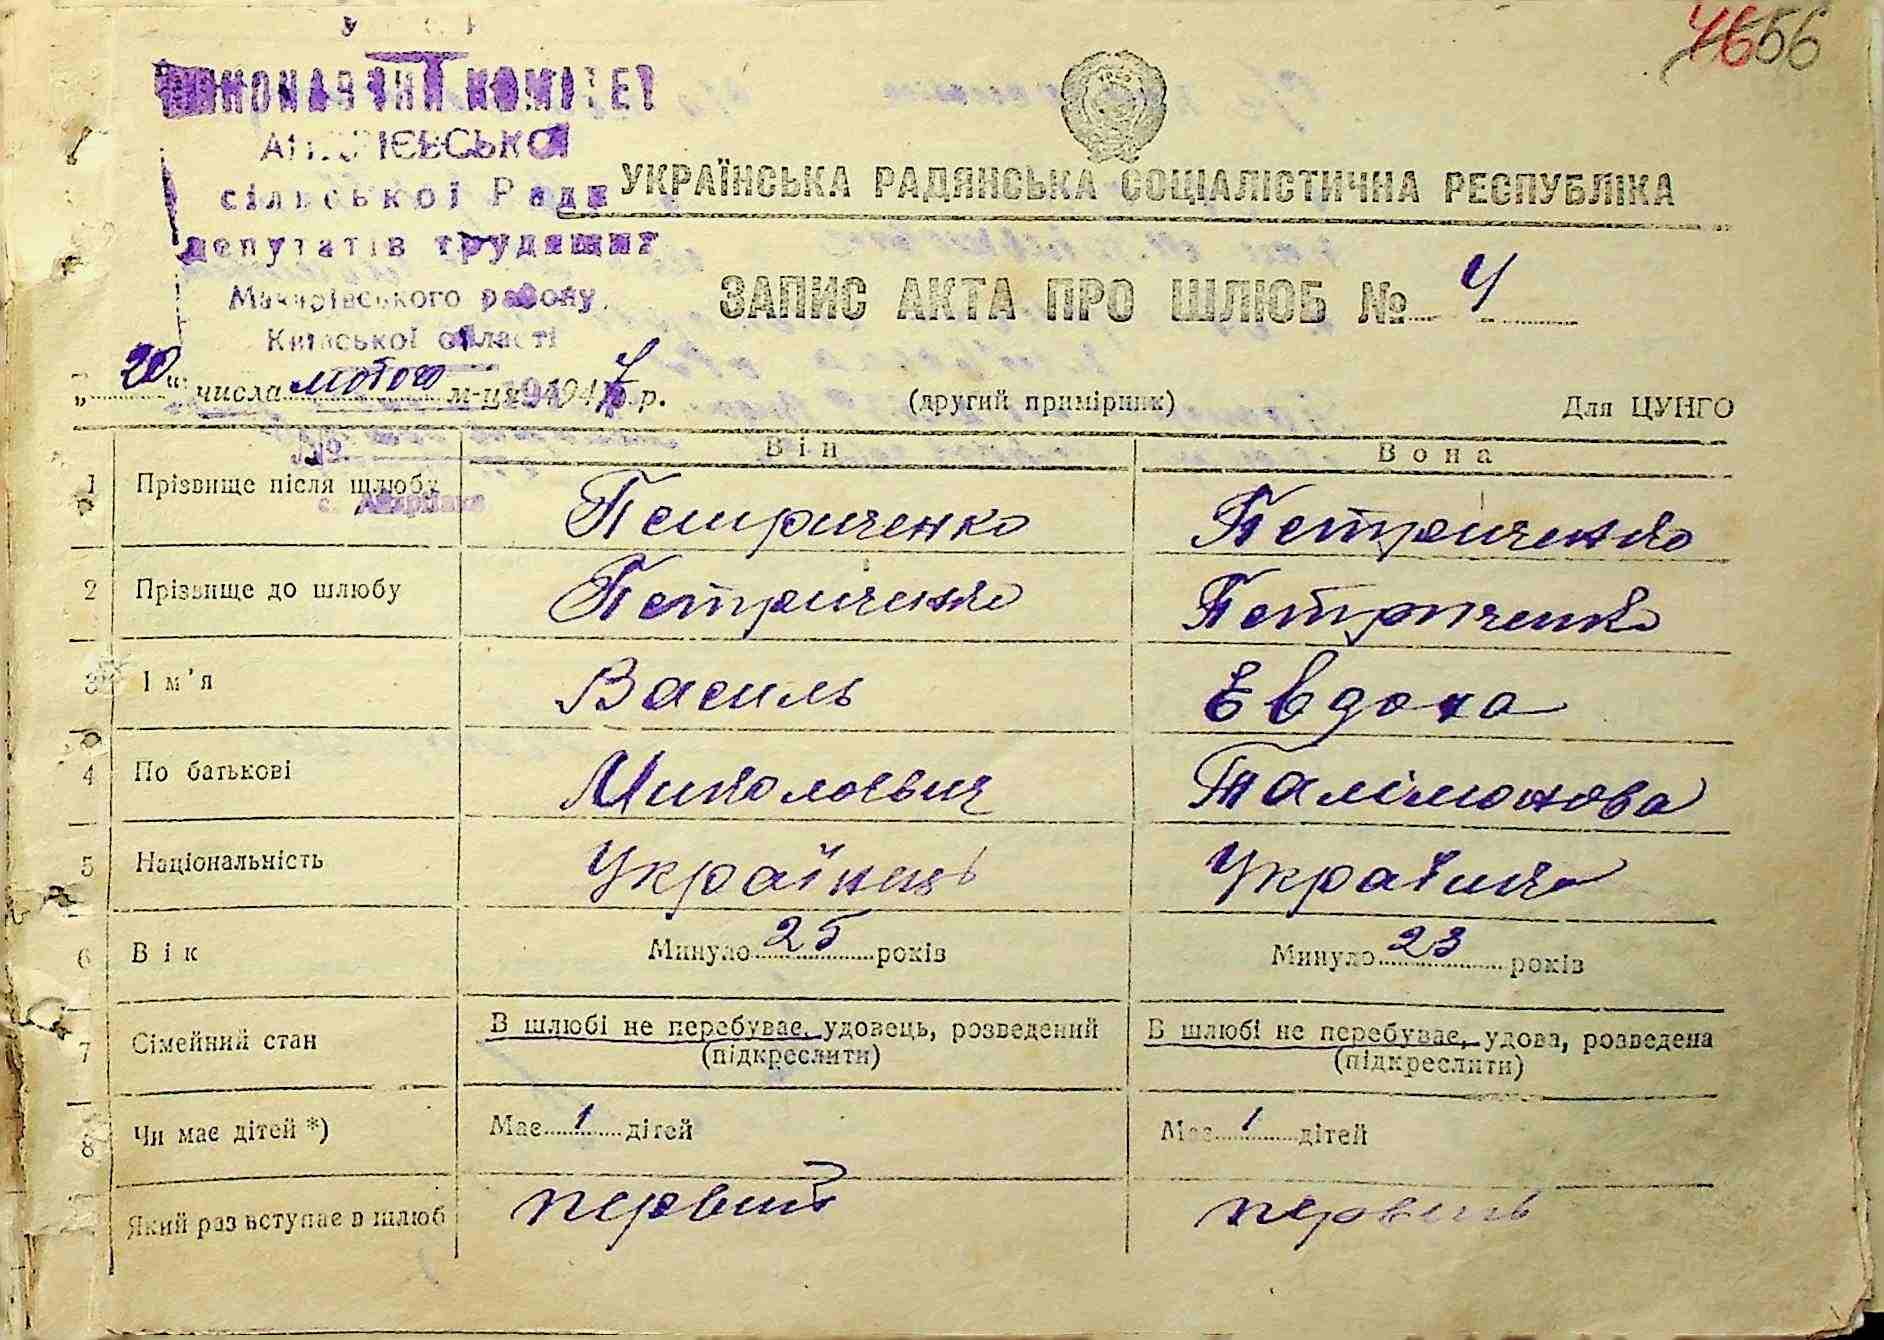 4656
ВИКОНАВЧИЙ КОМІТЕТ
АНДРІЄВСЬКОЇ
сільської Ради
депутатів трудящих
Макарівського району,
Київської області
УКРАЇНСЬКА РАДЯНСЬКА СОЦІАЛІСТИЧНА РЕСПУБЛІКА
ЗАПИС АКТА ПРО ШЛЮБ № 4
„20" числа лютого м-ця 1947 р.
(другий примірник)
Для ЦУНГО
№
Він Вона
1 Прізвище після шлюбу Петриченко Петриченко
2 Прізвище до шлюбу Петриченко Петриченко
3 Ім'я Василь Евдоха
4 По батькові Миколаевич Талімонова
5 Національність Українець Українка
6 Вік Минуло 25 років Минуло 23 років
7 Сімейний стан В шлюбі не перебуває, удовець, розведений (підкреслити) В шлюбі не перебуває, удова, розведена (підкреслити)
8 Чи має дітей *) Має 1 дітей Має 1 дітей
Який раз вступає в шлюб первий первий